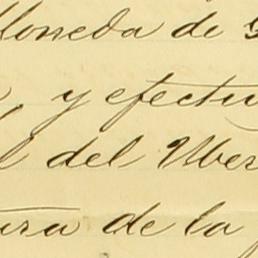 Moneda de
y efectu
l del Uber
ura de la